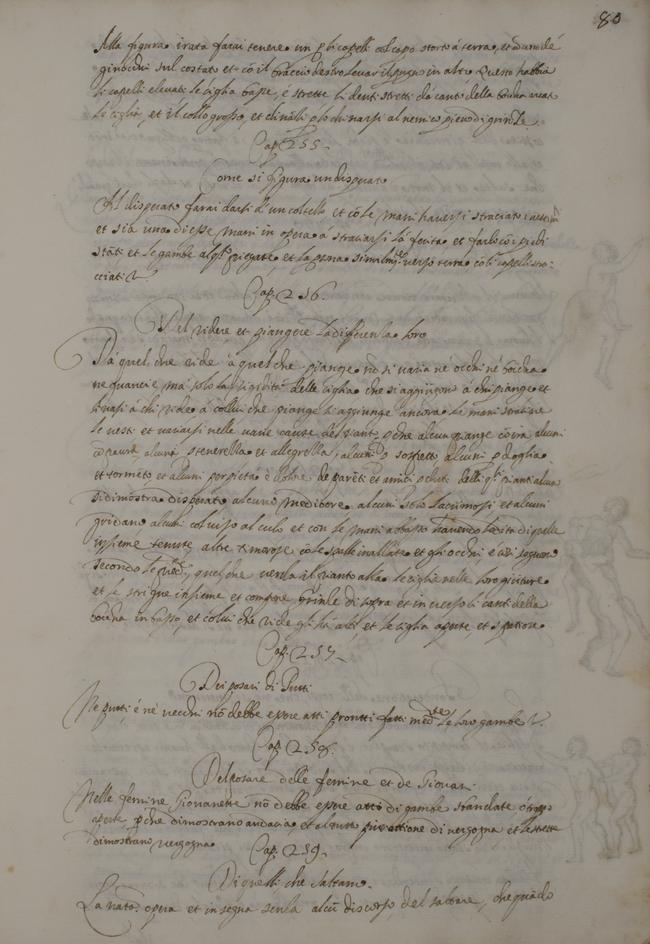 80
Alla figura irata farai tenere un p li capelli col capo storto á terra, et con un dé
ginocchi sul costato et có il braccio destro levar il pugno in alto. Questo habbia
li capelli elevati le ciglia basse, é strette li denti stretti da canto della bocha arcat
le ciglia, et il collo grosso, et chinarsi al nemico pieno di grinze.
Cap. 255.
Come si figura un disperato
Al disperato farai darsi d'un coltello et có le mani haversi stracciato
et sia una di esse mani in opera á stracciarsi la ferita et farlo có i piedi
státi et le gambe alq.to piegate, et la psona similmte verso terra có li capelli strac-
ciati
Cap. 256.
Del ridere, et piangere la differenza loro
Da quel che ride á quel che piange nó si varia né occhi né bocha
né guancie, má solo la rigidita delle ciglia che si aggiúgono á chi piange et
levasi á chi ride á collui che piange si aggiunge ancora le mani
le vesti et variarsi nelle varie cause del pianto pche alcun piange có ira alcuni
có paura alcuni tenerella et allegrezza, alcuni p sospetto alcuni p doglia
et torméto et alcuni per pietá é dolore de paréti et amici pduti delli q.li pianti alcuno
si dimostra disperato alcuno mediocre alcuni solo lacrimosi et alcuni
gridano alcuni col viso al culo et con le mani abasso havendo le dita di quelle
insieme tenute, altre timorose có le spalle inalzate et gli occhi, é cosi
secondo le quel che versa il pianto alza le ciglia nelle loro giunture
et le strigne insieme et compone grinze di sopra et in li canti della
bocha in basso, et colui che ride gli há alti, et le ciglia aperte et spatiose
Cap. 257.
Dei posari di Putti
Ne putti, é né vecchi nó debbe essere atti prontti fatti mediante le loro gambe
Cap. 258.
Del posare delle femine et de Giovani
Nelle femine Giovanette nó debbe essere atti di gambe stancate ó tropp
aperte, pche dimostrano audacia, et privatione di vergogna et le strette
dimostrano vergogna. Cap. 259.
Di quelli che saltano.
La natá opera et insegna senza alcú discorso del saltare, che quádo